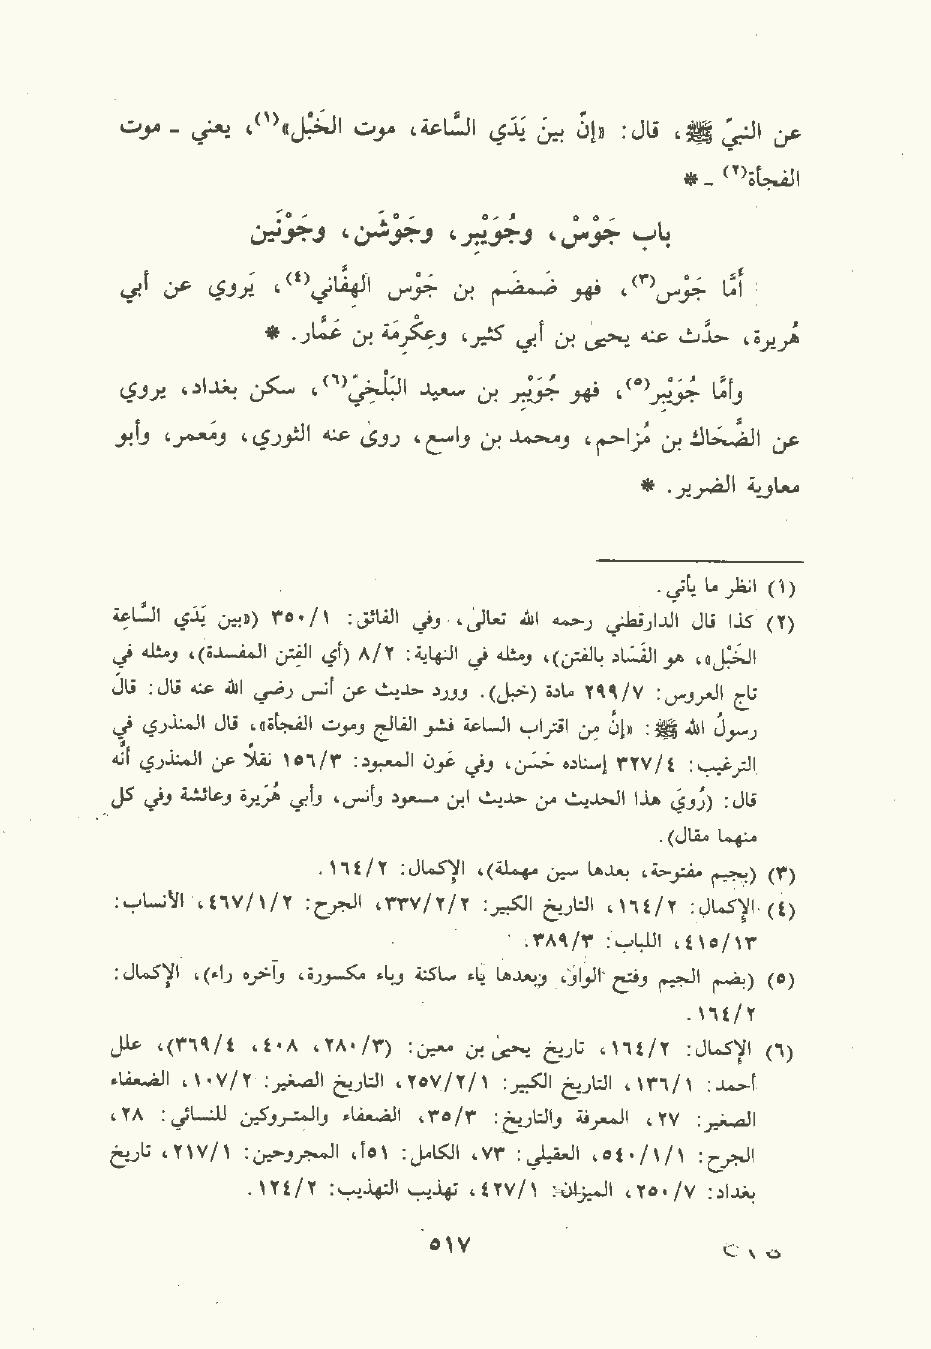 عن النبيّ ﷺ، قال: «إنّ بين يَدَي السَّاعة، موت الخَبْل»(١)، يعني - موت
الفجأة(٢) - *
باب جَوْسْ، وجُوَيْبِر، وجَوْشَن، وجَوْنَين
أَمَّا جَوْس(٣)، فهو ضَمضَم بن جَوْس الهِفَّاني(٤)، يَروي عن أبي
هُريرة، حدَّث عنه يحيىٰ بن أبي كثير، وعِكْرِمَة بن عَمَّار. *
وأمَّا جُوَيْبِر(٥)، فهو جُوَيْبِر بن سعيد البَلْخِيّ(٦)، سكن بغداد، يروي
عن الضَّحَاك بن مُزاحم، ومحمد بن واسع، روىٰ عنه الثوري، ومَعمر، وأبو
معاوية الضرير. *
(١) انظر ما يأتي.
(٢) كذا قال الدارقطني رحمه الله تعالىٰ، وفي الفائق: ٣٥٠/١ («بين يَدَي السَّاعِة
الخَبْل»، هو الفَسَاد بالفتن)، ومثله في النهاية: ٨/٢ (أي الفتن المفسدة)، ومثله في
تاج العروس: ٢٩٩/٧ مادة (خبل). وورد حديث عن أنس رضي الله عنه قال: قالَ
رسولُ الله ﷺ: «إنّ مِن اقتراب الساعة فشو الفالج وموت الفجأة»، قال المنذري في
الترغيب: ٣٢٧/٤ إسناده حَسَن، وفي عَون المعبود: ١٥٦/٣ نقلاً عن المنذري أنَّه
قال: (رُويَ هذا الحديث من حديث ابن مسعود وأنس، وأبي هُرَيرة وعائشة وفي كل
منهما مقال).
(٣) (بجيم مفتوحة، بعدها سين مهملة)، الإكمال: ١٦٤/٢.
(٤) الإكمال: ١٦٤/٢، التاريخ الكبير: ٣٣٧/٢/٢، الجرح: ٤٦٧/١/٢، الأنساب:
٤١٥/١٣، اللباب: ٣٨٩/٣.
(٥) (بضم الجيم وفتح الواو، وبعدها ياء ساكنة وباء مكسورة، وآخره راء)، الإكمال:
١٦٤/٢.
(٦) الإكمال: ١٦٤/٢، تاريخ يحيىٰ بن معين: (٢٨٠/٣، ٤٠٨، ٣٦٩/٤)، علل
أحمد: ١٣٦/١، التاريخ الكبير: ٢٥٧/٢/١، التاريخ الصغير: ١٠٧/٢، الضعفاء
الصغير: ٢٧، المعرفة والتاريخ: ٣٥/٣، الضعفاء والمتروكين للنسائي: ٢٨،
الجرح: ٥٤٠/١/١، العقيلي: ٧٣، الكامل: ٥١أ، المجروحين: ٢١٧/١، تاريخ
بغداد: ٢٥٠/٧، الميزان: ٤٢٧/١، تهذيب التهذيب: ١٢٤/٢.
٥١٧